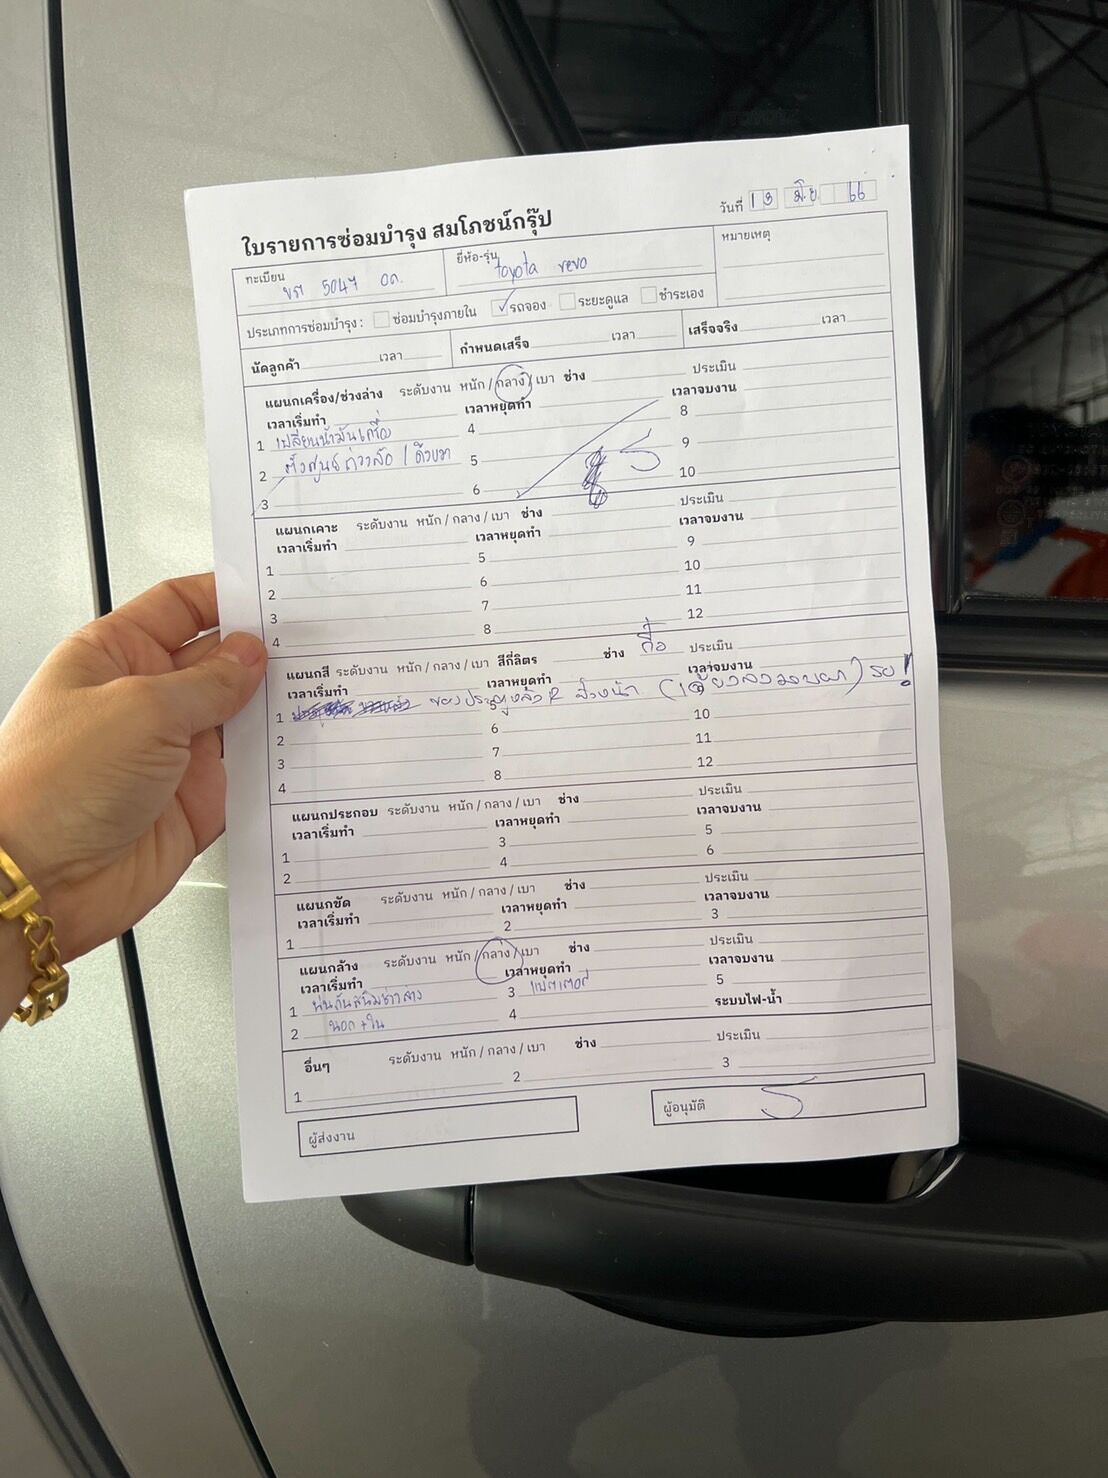 วันที่ 13 มิ.ย 66
ใบรายการซ่อมบำรุง สมโภชน์กรุ๊ป
ทะเบียน 5047 อด. ยี่ห้อ-รุ่น toyota revo หมายเหตุ
ประเภทการซ่อมบำรุง : ซ่อมบำรุงภายใน ✓ รถจอง ระยะดูแล ชำระเอง
นัดลูกค้า เวลา กำหนดเสร็จ เวลา เสร็จจริง เวลา
แผนกเครื่อง/ช่วงล่าง ระดับงาน หนัก / กลาง / เบา ช่าง ประเมิน
เวลาเริ่มทำ เวลาหยุดทำ เวลาจบงาน
1 เปลี่ยนน้ำมันเครื่อง 4 8
2 ตั้งศูนย์ถ่วงล้อ / 5 9
3 6 10
แผนกเคาะ ระดับงาน หนัก / กลาง / เบา ช่าง ประเมิน
เวลาเริ่มทำ เวลาหยุดทำ เวลาจบงาน
1 5 9
2 6 10
3 7 11
4 8 12
แผนกสี ระดับงาน หนัก / กลาง / เบา สีกี่ลิตร ช่าง ประเมิน
เวลาเริ่มทำ เวลาหยุดทำ เวลาจบงาน
1
2 6 10
3 7 11
4 8 12
แผนกประกอบ ระดับงาน หนัก / กลาง / เบา ช่าง ประเมิน
เวลาเริ่มทำ เวลาหยุดทำ เวลาจบงาน
1 3 5
2 4 6
แผนกขัด ระดับงาน หนัก / กลาง / เบา ช่าง ประเมิน
เวลาเริ่มทำ เวลาหยุดทำ เวลาจบงาน
1 2 3
แผนกล้าง ระดับงาน หนัก / กลาง / เบา ช่าง ประเมิน
เวลาเริ่มทำ เวลาหยุดทำ เวลาจบงาน
1 พ่นกันสนิมช่วงล่าง 3 แบตเตอรี่ 5
2 นอก + ใน 4 ระบบไฟ-น้ำ
อื่นๆ ระดับงาน หนัก / กลาง / เบา ช่าง ประเมิน
1 2 3
ผู้ส่งงาน ผู้อนุมัติ